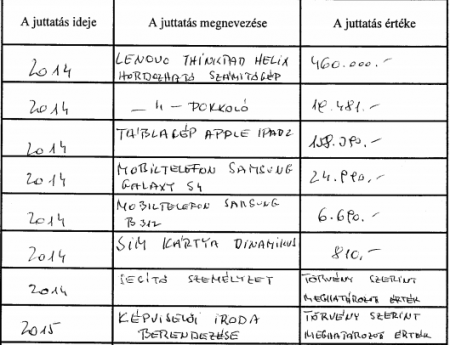 A juttatás ideje A juttatás megnevezése A juttatás értéke
2014 LENOVO THINKPAD HELIX
HORDOZHATÓ SZÁMÍTÓGÉP 460.000.-
2014 — 11 — DOKKOLÓ
2014 TÁBLAGÉP APPLE IPAD2
2014 MOBILTELEFON SAMSUNG
GALAXY S4
2014 MOBILTELEFON SAMSUNG
B 312
2014 SIM KÁRTYA DINAMIKUS 810,-
2014 SEGÍTŐ SZEMÉLYZET TÖRVÉNY SZERINT
MEGHATÁROZOTT ÉRTÉK
2015 KÉPVISELŐI IRODA
BERENDEZÉSE TÖRVÉNY SZERINT
MEGHATÁROZOTT ÉRTÉK